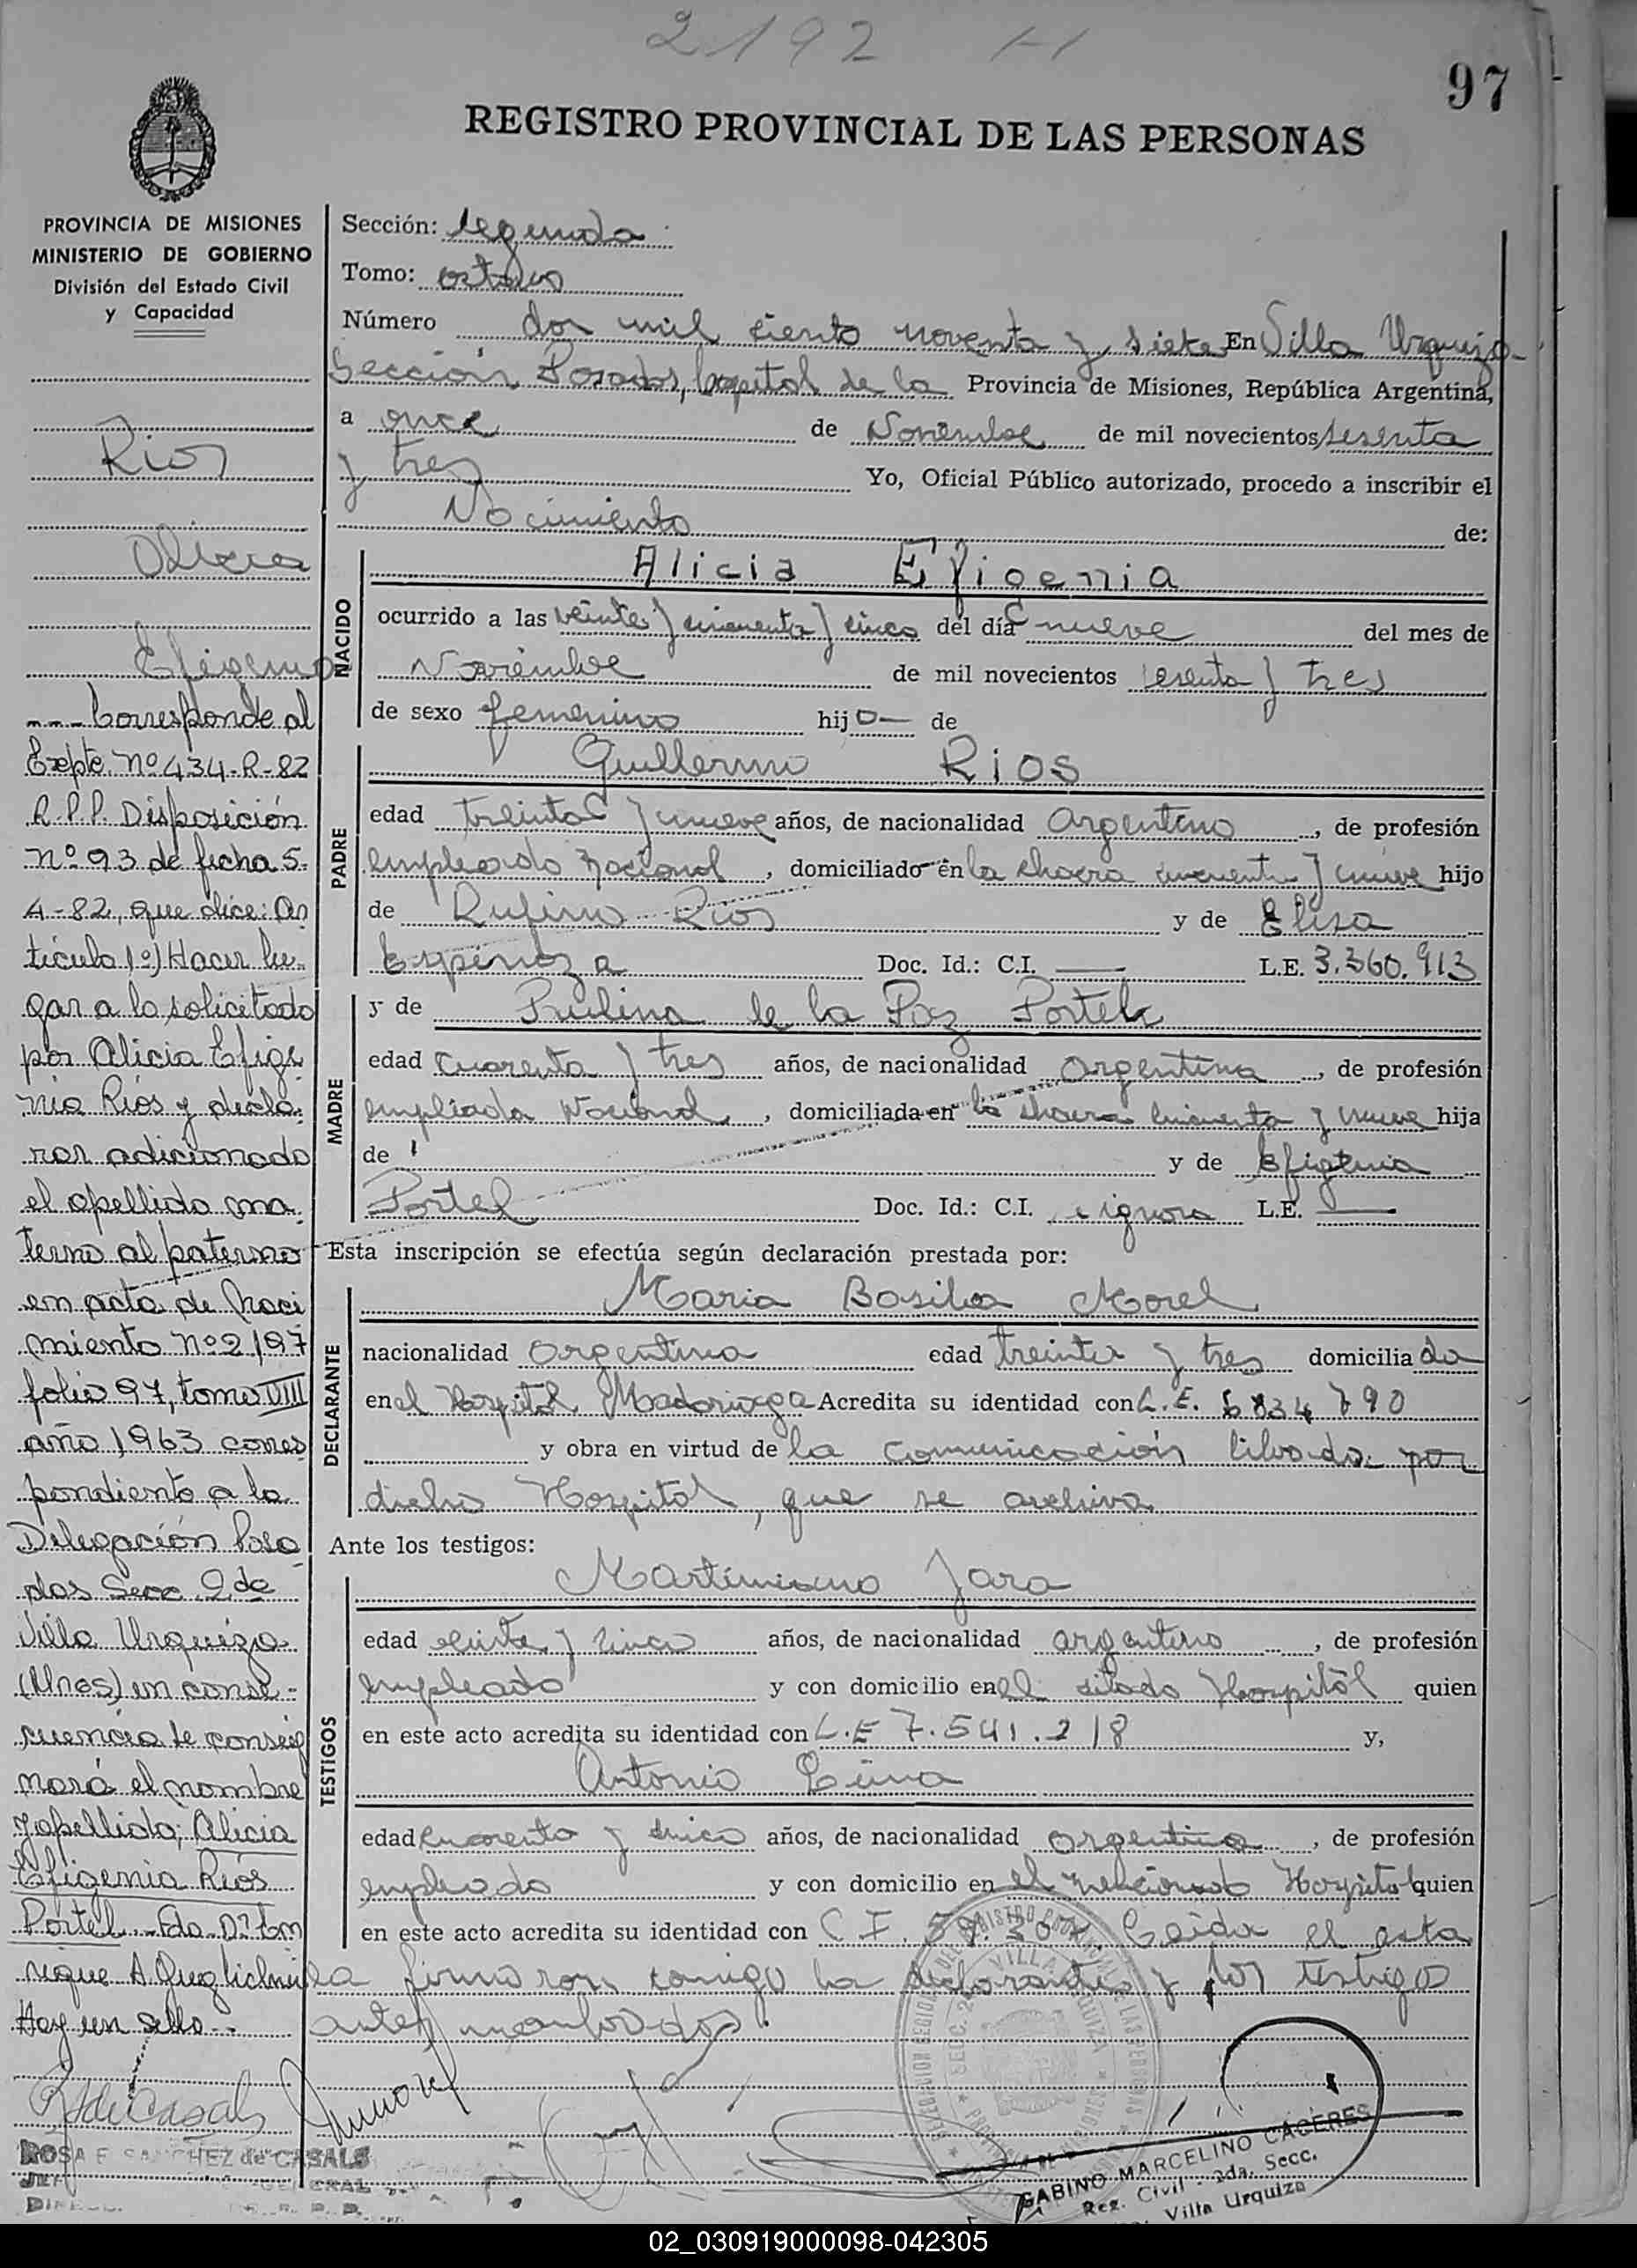 2192
97
REGISTRO PROVINCIAL DE LAS PERSONAS
PROVINCIA DE MISIONES
MINISTERIO DE GOBIERNO
División del Estado Civil
y Capacidad
Rios
Alicia
Efigenia
--- Corresponde al
Expte. Nº 434-R-82
R.P.P. Disposición
nº 93 de fecha 5-
4-82, que dice: Ar
tículo 1º) Hacer lu-
gar a lo solicitado
por Alicia Efige
nia Ríos y decla-
rar adicionado
el apellido ma-
terno al paterno
en acta de Naci
miento nº 2197
folio 97, tomo VIII
año 1963 corres
pondiente a la
Delegación Posa
das Secc. 2 de
Villa Urquiza
(Mnes) en conse-
cuencia se consig
nará el nombre
y apellido; Alicia
Efigenia Ríos
Portel.- Fdo. Dr. En
rique A. Hay un sello.-
ROSA E SANCHEZ de CASALS
Sección: segunda
Tomo: octavo
Número dos mil ciento noventa y siete En Villa Urquiza-
Sección Posadas, Capital de la Provincia de Misiones, República Argentina,
a once de Noviembre de mil novecientos sesenta
y tres Yo, Oficial Público autorizado, procedo a inscribir el
Nacimiento de:
NACIDO
Alicia Efigenia
ocurrido a las veinte y cincuenta y cinco del día nueve del mes de
Noviembre de mil novecientos sesenta y tres
de sexo femenino hijo- de
PADRE
Guillermo Rios
edad treinta y nueve años, de nacionalidad Argentino, de profesión
empleado Nacional, domiciliado en la chacra cincuenta y nueve hijo
de Rufino Rios y de Elisa
Espinoza Doc. Id.: C.I. — L.E. 3.360.913
MADRE
y de Paulina de la Paz Portel
edad cuarenta y tres años, de nacionalidad Argentina, de profesión
empleada Nacional, domiciliada en la chacra cincuenta y nueve hija
de y de Efigenia
Portel Doc. Id.: C.I. ignora L.E. —
Esta inscripción se efectúa según declaración prestada por:
DECLARANTE
Maria Basilia Morel
nacionalidad Argentina edad treinta y tres domiciliada
en el Hospital Madariaga Acredita su identidad con L.E. 6834790
y obra en virtud de la comunicación librada por
dicho Hospital, que se archiva
Ante los testigos:
TESTIGOS
Martiniano Jara
edad y cinco años, de nacionalidad argentino, de profesión
empleado y con domicilio en el citado Hospital quien
en este acto acredita su identidad con L.E 7.541.218 y,
Antonio
edad cuarenta y cinco años, de nacionalidad argentino, de profesión
empleado y con domicilio en el mencionado Hospital quien
en este acto acredita su identidad con C.I. 59.307. Leida el acta
la firmaron conmigo la declarante y los testigos
antes nombrados.
VILLA URQUIZA
GABINO MARCELINO CACERES
Reg. Civil - 2da. Secc.
Villa Urquiza
02_030919000098-042305